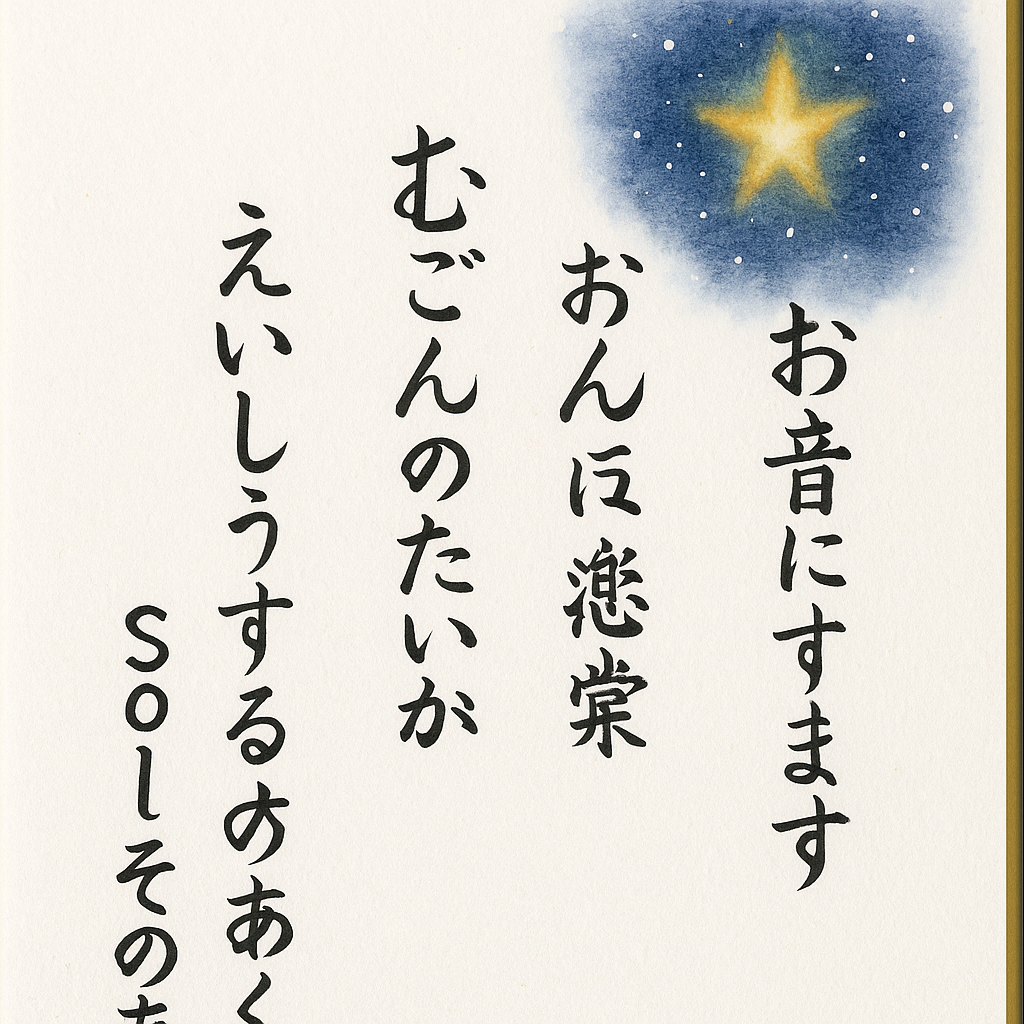 お音にすます
おんに
むごんのたいが
えいしうするのあく
solその